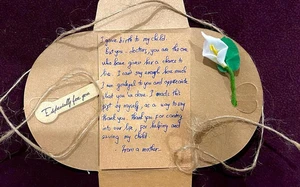 I gave birth to my child.
But you - doctors, you are the one
who have given her a chance to
live. I can't say enough how much
I am grateful to you and appreciate
what you've done. I made this
gift by myself, as a way to say
thank you. Thank you for coming
into our life, for helping and
saving my child.
From a mother.
Especially for you